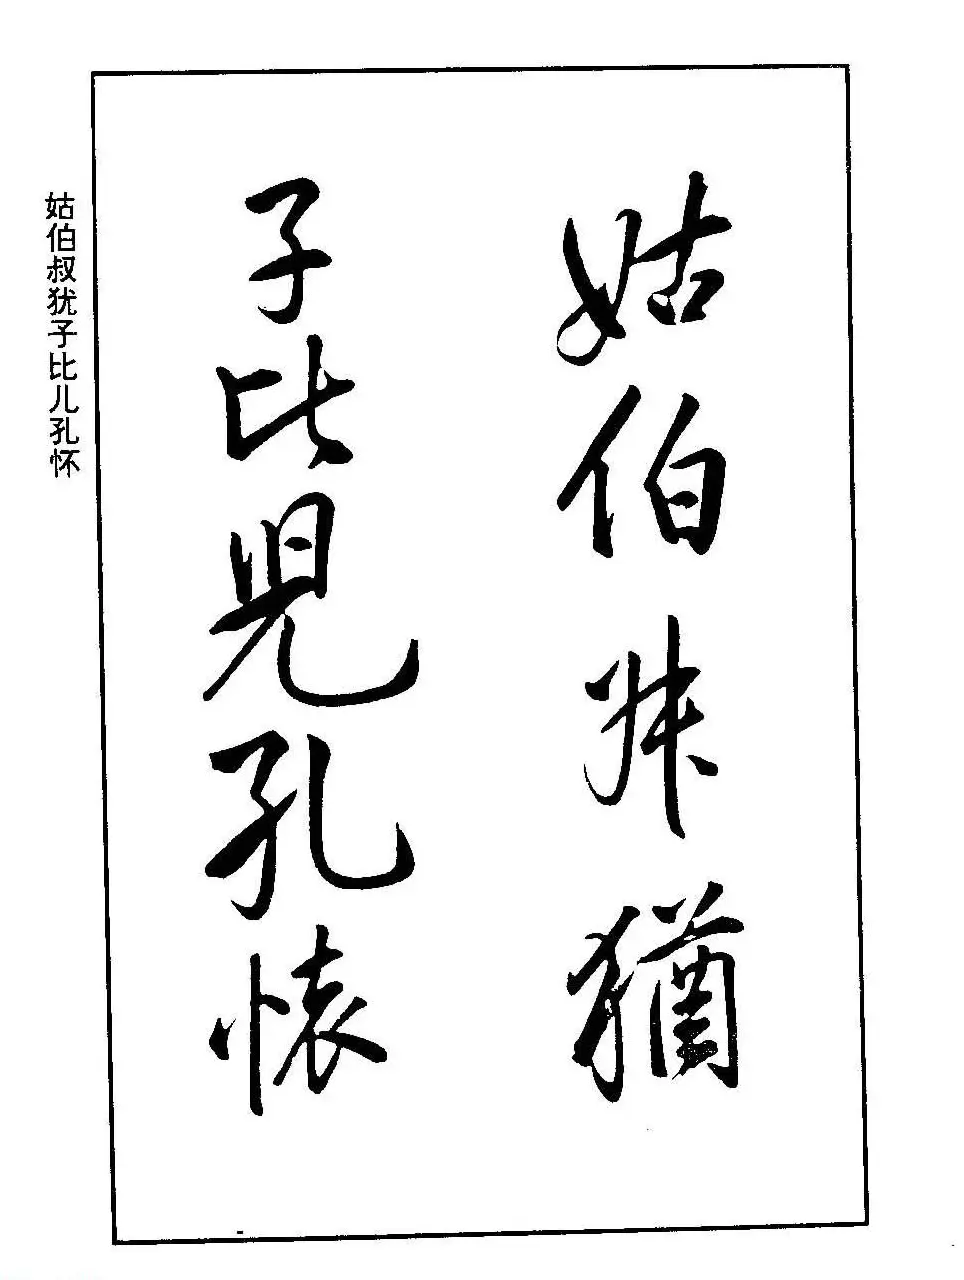 姑伯叔猶
子比兒孔懷
姑伯叔犹子比儿孔怀